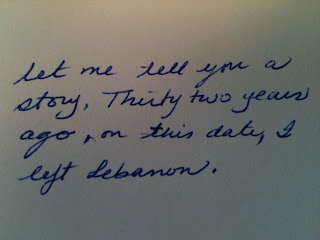 let me tell you a
story, Thirty two years
ago, on this date, I
left Lebanon.